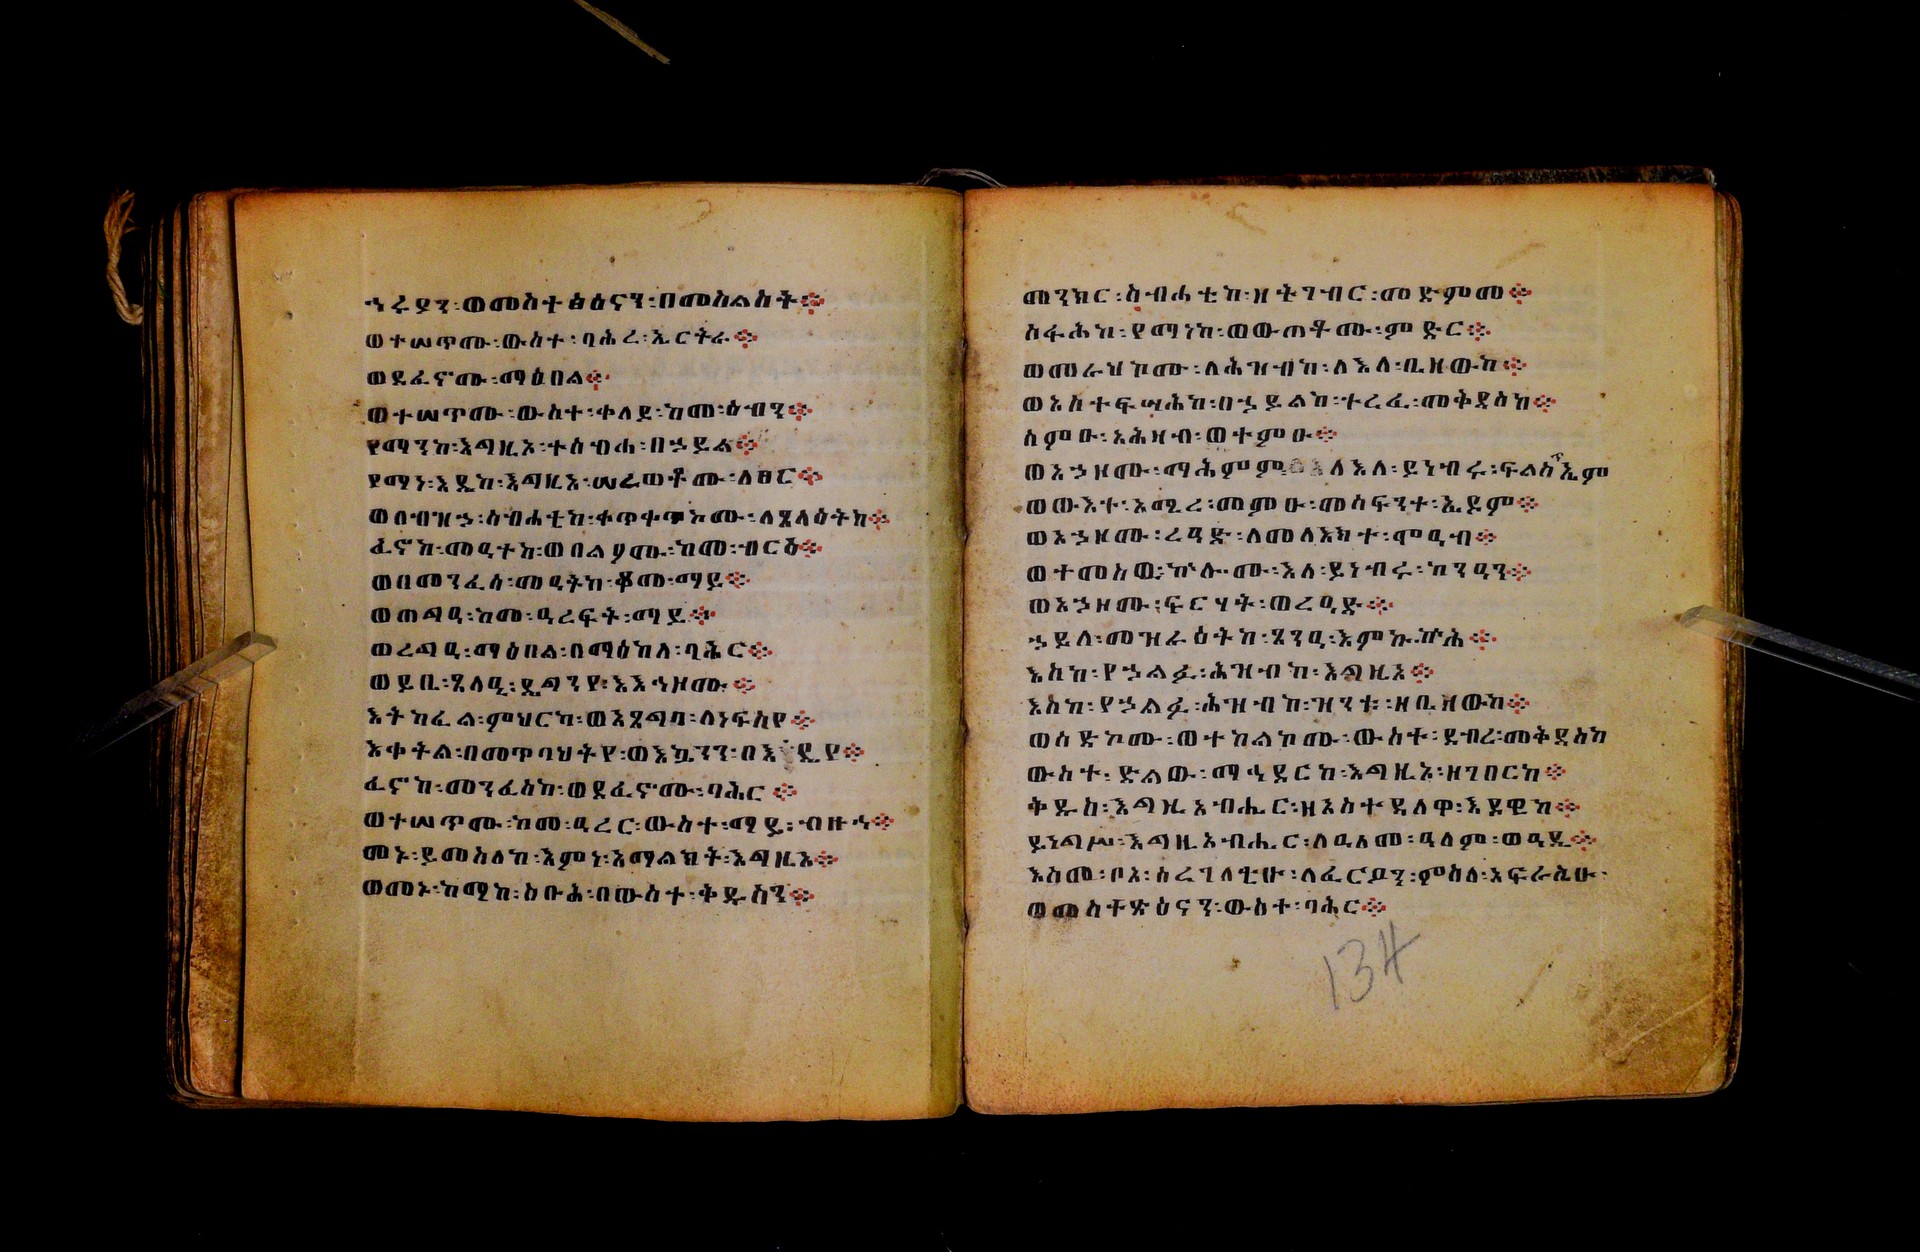 ኅሩያን፡ወመስተፅዕናን፡በመስልስት፨
ወተሠጥሙ፡ውስተ፡ባሕረ፡ኤርትራ፨
ወደፈኖሙ፡ማዕበል፨
ወተሠጥሙ፡ውስተ፡ቀላይ፡ከመ፡ዕብን፨
የማንከ፡እግዚኦ፡ተሰብሐ፡በኃይል፨
የማነ፡እዴከ፡እግዚአ፡ሠረወቶሙ፡ለፀር፨
ወበብዝኃ፡ስብሐቲከ፡ቀጥቀጥኮሙ፡ለጸላዕትከ፨
ፈኖከ፡መዓተከ፡ወበልዖሙ፡ከመ፡ብርዕ፨
ወበመንፈሰ፡መዓትከ፡ቆመ፡ማይ፨
ወጠግዓ፡ከመ፡ዓረፍት፡ማይ፨
ወረግዓ፡ማዕበል፡በማዕከለ፡ባሕር፨
ወይቤ፡ጸላዒ፡ዴግንየ፡እእኅዞሙ፨
እትካፈል፡ምህርካ፡ወእጸግባ፡ለነፍስየ፨
እቀትል፡በመጥባህትየ፡ወእኴንን፡በእዴየ፨
ፈኖከ፡መንፈስከ፡ወደፈኖሙ፡ባሕር፨
ወተሠጥሙ፡ከመ፡ዓረር፡ውስተ፡ማይ፡ብዙኅ፨
መኑ፡ይመስለከ፡እምነ፡አማልክት፡እግዚአ፨
ወመኑ፡ከማከ፡ስቡሕ፡በውስተ፡ቅዱሳን፨
መንክር፡ስብሐቲከ፡ዘትገብር፡መድምመ፨
ሰፋሕከ፡የማነከ፡ወውጠቶሙ፡ምድር፨
ወመራህኮሙ፡ለሕዝብከ፡ለእለ፡ቤዘውከ፨
ወአስተፍሣሕከ፡በኃይልከ፡ተረፈ፡መቅደስከ፨
ሰምዑ፡አሕዛብ፡ወተምዑ፨
ወአኃዞሙ፡ማሕምም፡ለእለ፡ይነብሩ፡ፍልስጥኤም
ወውእተ፡አሚረ፡መምዑ፡መሳፍንተ፡ኤዶም፨
ወአኃዞሙ፡ረዓድ፡ለመላእክተ፡ሞዓብ፨
ወተመስወ፡ኵሎሙ፡እለ፡ይነብሩ፡ከንዓን፨
ወአኃዞሙ፡ፍርሃት፡ወረዓድ፨
ኃይለ፡መዝራዕትከ፡ጸንዓ፡እምኵኵሕ፨
እስከ፡የኃልፍ፡ሕዝብከ፡እግዚአ፨
እስከ፡የኃልፍ፡ሕዝብከ፡ዝንቱ፡ዘቤዘውከ፨
ወሰድኮሙ፡ወተከልኮሙ፡ውስተ፡ደብረ፡መቅደስከ
ውስተ፡ድልው፡ማኅደርከ፡እግዚኦ፡ዘገበርከ፨
ቅዱስ፡እግዚአብሔር፡ዘአስተዳለዋ፡እደዊከ፨
ይነግሥ፡እግዚአብሔር፡ለዓለመ፡ዓለም፡ወዓዲ፨
እስመ፡ቦአ፡ሰረገላቲሁ፡ለፈርዖን፡ምስለ፡አፍራሲሁ፡
ወመስተጽዕናን፡ውስተ፡ባሕር፨
134